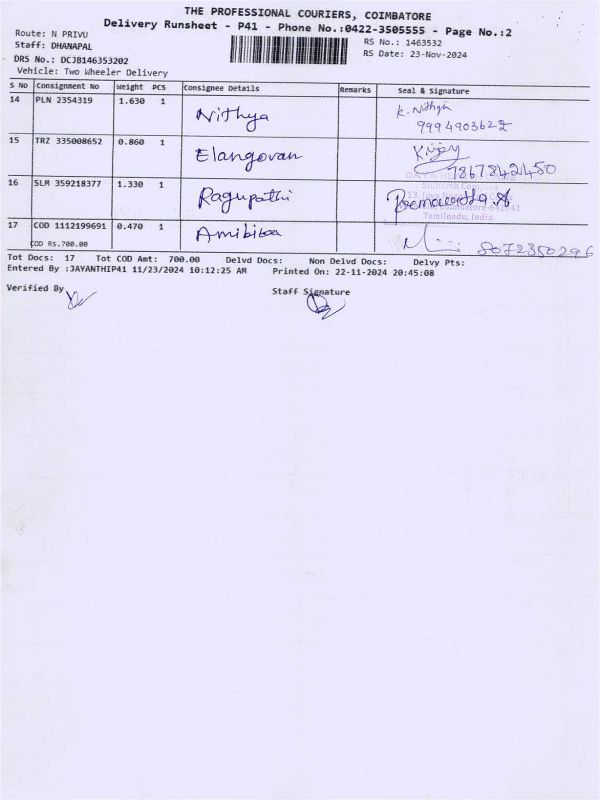 THE PROFESSIONAL COURIERS, COIMBATORE
Delivery Runsheet - P41 - Phone No.:0422-3505555 - Page No.:2
Route: N PRIVU
Staff: DHANAPAL
DRS No.: DCJB146353202
Vehicle: Two Wheeler Delivery
RS No.: 1463532
RS Date: 23-Nov-2024
S No Consignment No Weight PCS Consignee Details Remarks Seal & Signature
14 PLN 2354319 1.630 1 Nithya K. Nithya
9994903622
15 TRZ 335008652 0.860 1 Elangovan K.vijay
7867842450
16 SLM 359218377 1.330 1 Ragupathi
Sidharth Complex
Tamilnadu, India
17 COD 1112199691 0.470 1 8072350296
COD RS.700.00
Tot Docs: 17 Tot COD Amt: 700.00 Delvd Docs: Non Delvd Docs: Delvy Pts:
Entered By :JAYANTHIP41 11/23/2024 10:12:25 AM Printed On: 22-11-2024 20:45:08
Verified By Staff Signature